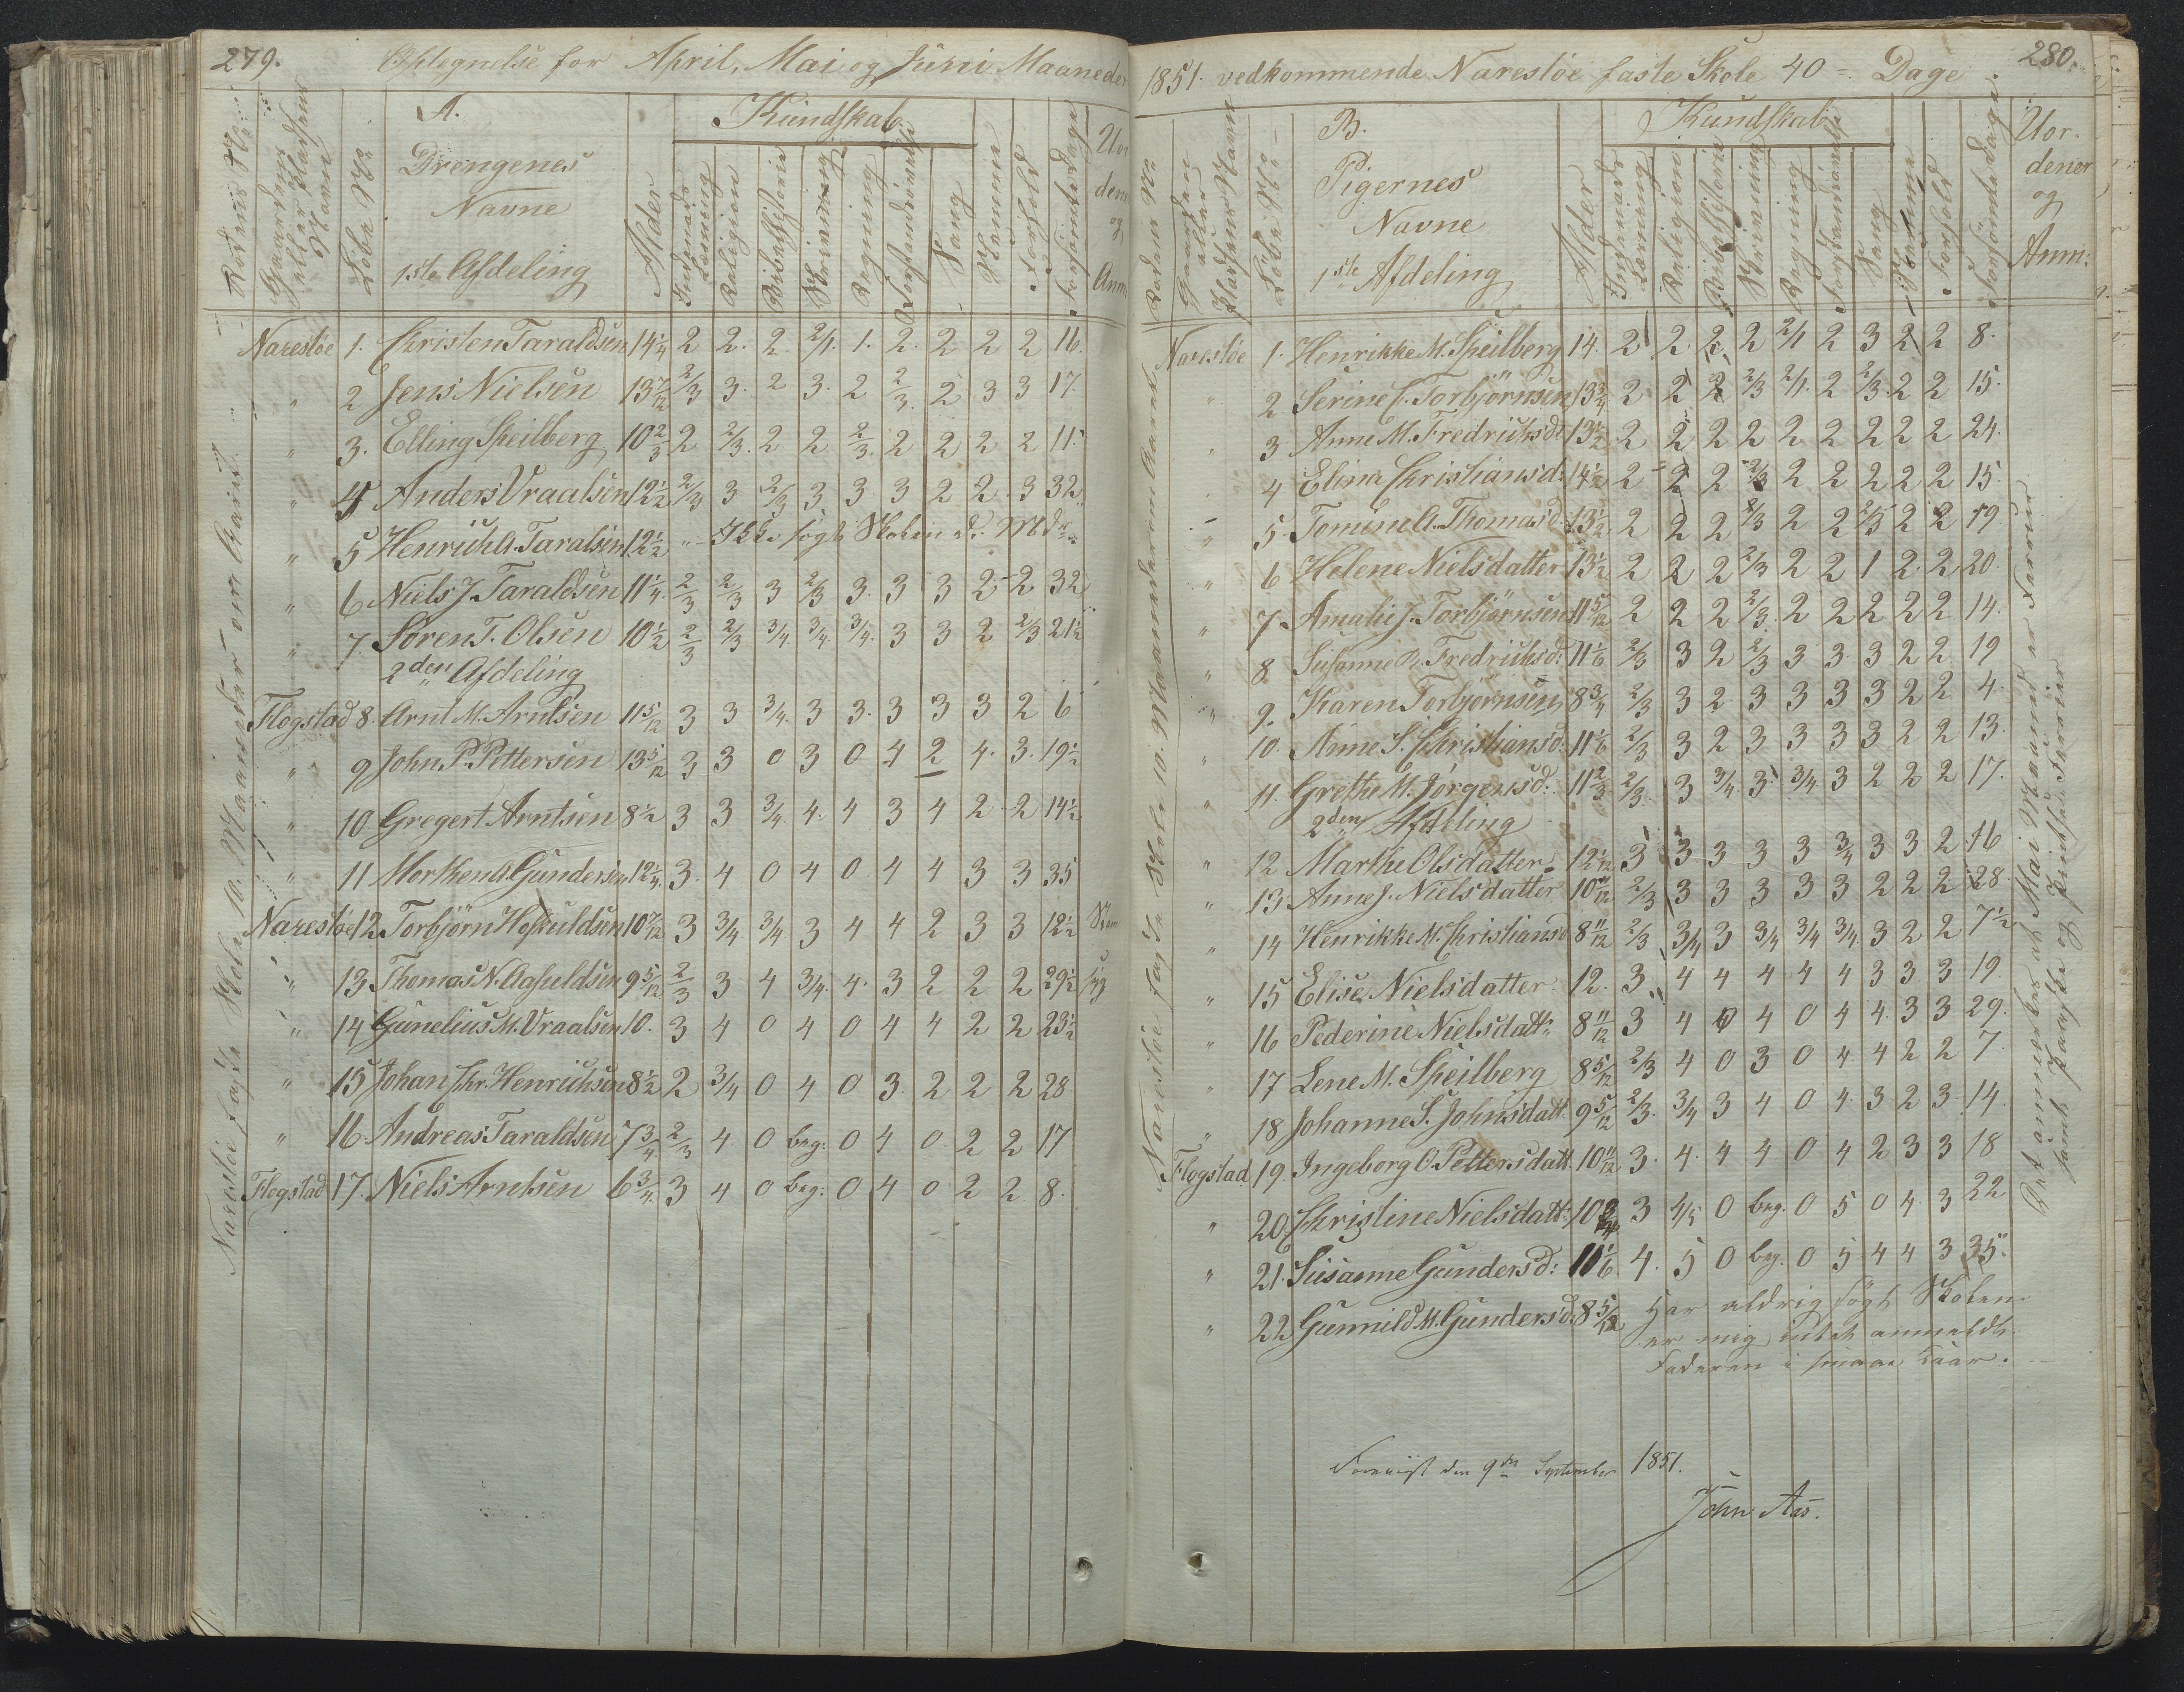 279.
Optegnelse for April, Mai og Juni Maaneder
Rodens No
Gaardens eller Pladsens Navn
Løbe No
A.
Drengenes
Navne
1ste Afdeling
Alder
Kundskab
Indenads Læsning
Religion
Bibelhistorie
Skrivning
Regning
Forstandsøvelse
Sang
Nemme
Forhold
Forsømte Dage
Uordener og Anm:
Naresløe 1. Christen Taraldsen 14 1/4 2 2. 2 2/1. 1. 2. 2 2 2 16.
" 2 Jens Nielsen 13 7/12 2/3 3. 2 3. 2 2/3. 2 3 3 17.
" 3. Elling Speilberg 10 2/3 2 2/3. 2 2 2/3. 2 2 2 2 11.
" 4 Anders Vraalsen 12 1/2 2/3 3 2/3 3 3 3 2 2. 3 32.
" 5 Henrich A. Taralsen 12 1/2 " Ikke søgt Skolen d. Mdr.
" 6 Niels J. Taraldsen 11 1/4. 2/3 2/3 3 2/3 3. 3 3 2 2 32
" 7. Søren T. Olsen 10 1/2 2/3 2/3 3/4. 3/4. 3/4. 3 3 2 2/3 21 1/2
2den Afdeling
Flogstad 8. Arnt M. Arntsen 11 5/12 3 3 3/4. 3 3. 3 3 3 2 6
" 9 John P. Pettersen 13 5/12 3 3 0 3 0 4 2 4. 3. 19 1/2
" 10 Gregert Arntsen 8 1/2 3 3 3/4. 4. 4 3 4 2 2 14 1/2
" 11 Morthen A. Gundersen 12 1/4. 3. 4 0 4 0 4 4 3 3 35
Naresløe 12. Torbjørn Hoskuldsen 10 7/12 3 3/4 3/4 3 4 4 2 3 3 12 1/2
" 13 Thomas N. Aasuldsen 9 5/12 2/3 3 4 3/4. 4. 3 2 2 2 29 1/2 syg
" 14 Gunelius M. Vraalsen 10. 3 4 0 4 0 4 4 2 2 23 1/2
" 15 Johan Chr. Henrichsen 8 1/2 2 3/4 0 4 0 3. 2 2 2 28
" 16 Andreas Taraldsen 7 3/4 2/3 4. 0 beg. 0 4 0 2 2 17
Flogstad 17. Niels Arntsen 6 3/4. 3 4 0 beg. 0 4 0 2 2 8.
Naresløe faste Skole 10. Maaneder om Aaret
280.
1851. vedkommende Naresløe faste Skole 40 =. Dage
Rodens No
Gaardens eller Pladsens Navn
Løbe No
B.
Pigernes
Navne
1ste Afdeling
Alder
Kundskab
Indenads Læsning
Religion
Bibelhistorie
Skrivning
Regning
Forstandsøvelse
Sang
Nemme
Forhold
Forsømte Dage.
Uordener og Anm:
Naresløe 1. Henrikke M. Speilberg 14. 2 2. 2. 2 2/1 2 3 2 2 8.
" 2 Serine C. Torbjørnsen 13 3/4 2 2 2 2/3 2/1. 2 2/3. 2 2 15.
" 3 Anne M. Fredrichsd: 13 1/2 2 2 2 2 2 2 2 2 2 24.
4 Elina Christiansd: 14 1/2 2 2 2 2/3 2 2 2 2 2 15.
" 5. Tomine A. Thomasd: 13 1/2. 2 2 2 2/3 2 2 2/3 2 2 19
" 6 Helene Nielsdatter 13 1/2 2 2 2 2/3 2 2 1 2. 2 20.
" 7. Amalie J. Torbjørnsen 11 5/12 2 2 2 2/3. 2 2 2 2 2 14.
" 8 Susanne B. Fredrichsd: 11 1/6 2/3 3 2 2/3 3 3 3 2 2 19
" 9. Karen Torbjørnsen 8 3/4 2/3 3 2 3 3 3 3 2 2 4.
" 10. Anne S. Christiansd: 11 1/6 2/3 3 2 3 3 3 3 2 2 13.
" 11. Grethe M. Jørgensd: 11 2/3 2/3. 3 3/4. 3. 3/4 3 2 2 2 17.
2den Afdeling
" 12 Marthe Olsdatter. 12 1/12 3 3. 3 3 3 3/4 3 3 2 16
" 13 Anne J. Nielsdatter 10 11/12 2/3 3 3 3 3 3 2 2 2 28.
" 14 Henrikke M. Christiansd 8 11/12 2/3 3/4 3 3/4 3/4 3/4 3 2 2 7 1/2
" 15 Elise Nielsdatter. 12. 3. 4 4 4 4 4 3 3 3 19.
" 16 Pederine Nielsdattr. 8 11/12 3 4 0 4 0 4 4 3 3 29.
" 17 Lene M. Speilberg 8 5/12 2/3 4 0 3 0 4 4 2 2 7.
" 18 Johanne S. Johnsdatt. 9 5/12 2/3. 3/4 3 4 0 4. 3 2 3 14.
Flogstad 19. Ingeborg O. Pettersdatt. 10 11/12 3. 4. 4 4 0 4 2 3 3 18
" 20. Christine Nielsdatt: 10 3/4 3 4/5 0 beg. 0 5 0 4. 3 22
" 21. Susanne Gundersd: 11 1/6 4. 5 0 beg. 0 5 4 4 3 35.
" 22 Gunnild M. Gundersd. 8 5/12 Har aldrig søgt Skolen
er mig intet anmeldt.
Faderen i smaae Kaar.
Naresløe faste Skole 10. Maaneder om Aaret
Det anmærkes at Mai Maaned er Ferier
samt Paaske og Pintse Ferier
Foreviist den 9de September 1851.
John Aas.